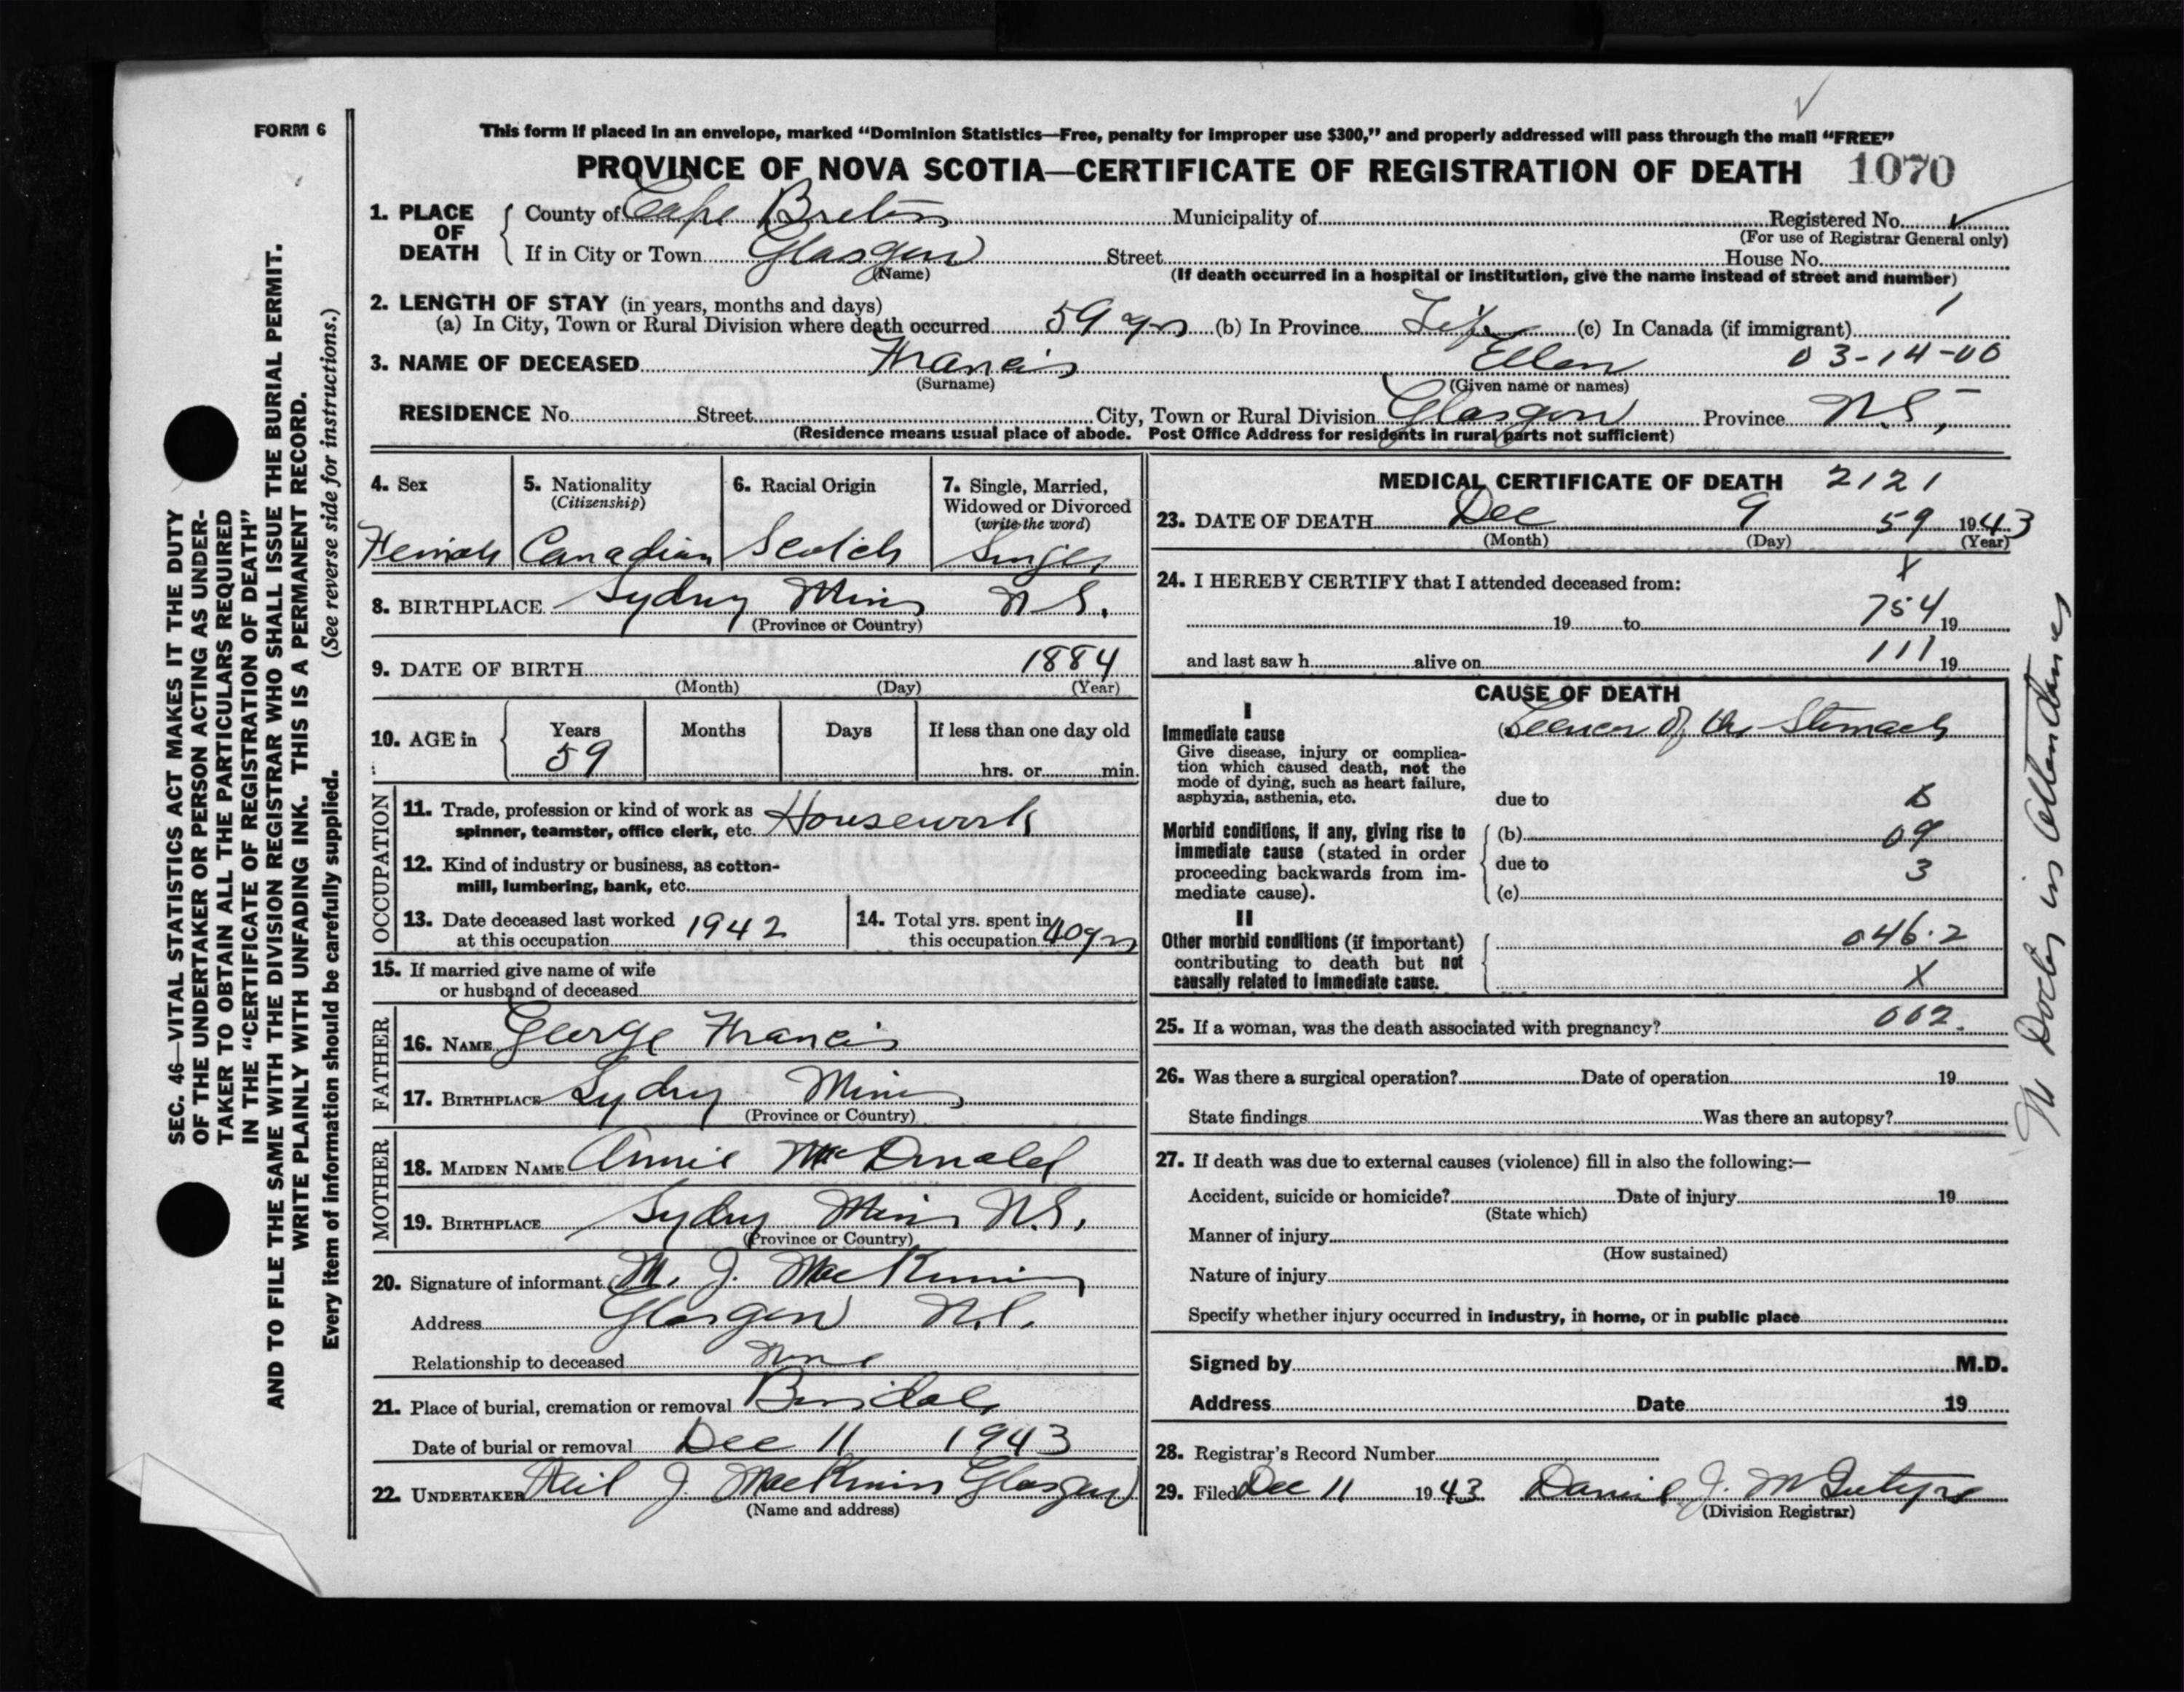 FORM 6
This form if placed in an envelope, marked “Dominion Statistics—Free, penalty for improper use $300,” and properly addressed will pass through the mail “FREE”
PROVINCE OF NOVA SCOTIA—CERTIFICATE OF REGISTRATION OF DEATH 1070
1. PLACE OF DEATH County of Cape Breton Municipality of Registered No.
(For use of Registrar General only)
If in City or Town Glasgow Street House No.
(Name) (If death occurred in a hospital or institution, give the name instead of street and number)
2. LENGTH OF STAY (in years, months and days) 1
(a) In City, Town or Rural Division where death occurred 59 yrs (b) In Province Life (c) In Canada (if immigrant)
3. NAME OF DECEASED Francis Ellen 03-14-00
(Surname) (Given name or names)
RESIDENCE No. Street City, Town or Rural Division Glasgow Province N.S.
(Residence means usual place of abode. Post Office Address for residents in rural parts not sufficient)
4. Sex 5. Nationality 6. Racial Origin 7. Single, Married,
(Citizenship) Widowed or Divorced
(write the word)
Female Canadian Scotch Single
8. BIRTHPLACE Sydney Mines N.S.
(Province or Country)
9. DATE OF BIRTH 1884
(Month) (Day) (Year)
10. AGE in Years Months Days If less than one day old
59 hrs. or min.
OCCUPATION
11. Trade, profession or kind of work as
spinner, teamster, office clerk, etc. Housework
12. Kind of industry or business, as cotton-
mill, lumbering, bank, etc.
13. Date deceased last worked
at this occupation 1942
14. Total yrs. spent in
this occupation 40 yrs
15. If married give name of wife
or husband of deceased
FATHER
16. NAME George Francis
17. BIRTHPLACE Sydney Mines
(Province or Country)
MOTHER
18. MAIDEN NAME Annie McDonald
19. BIRTHPLACE Sydney Mines N.S.
(Province or Country)
20. Signature of informant M. J. MacKinnin
Address Glasgow N.S.
Relationship to deceased None
21. Place of burial, cremation or removal
Date of burial or removal Dec 11 1943
22. UNDERTAKER Neil J. MacKinnin Glasgow
(Name and address)
MEDICAL CERTIFICATE OF DEATH 2121
23. DATE OF DEATH Dec 9 59 1943
(Month) (Day) (Year)
X
24. I HEREBY CERTIFY that I attended deceased from:
19 to 754 19
and last saw h alive on 111 19
CAUSE OF DEATH
I
Immediate cause (a) Cancer of the Stomach
Give disease, injury or complica-
tion which caused death, not the
mode of dying, such as heart failure,
asphyxia, asthenia, etc.
due to
Morbid conditions, if any, giving rise to
immediate cause (stated in order
proceeding backwards from im-
mediate cause).
(b) 09
due to 3
(c)
II
Other morbid conditions (if important)
contributing to death but not
causally related to immediate cause.
046.2
X
25. If a woman, was the death associated with pregnancy? 002.
26. Was there a surgical operation? Date of operation 19
State findings Was there an autopsy?
27. If death was due to external causes (violence) fill in also the following:—
Accident, suicide or homicide? Date of injury 19
(State which)
Manner of injury
(How sustained)
Nature of injury
Specify whether injury occurred in industry, in home, or in public place
Signed by M.D.
Address Date 19
28. Registrar's Record Number
29. Filed Dec 11 1943 Daniel J. McIntyre
(Division Registrar)
No Doctor in Attendance
SEC. 46—VITAL STATISTICS ACT MAKES IT THE DUTY
OF THE UNDERTAKER OR PERSON ACTING AS UNDER-
TAKER TO OBTAIN ALL THE PARTICULARS REQUIRED
IN THE “CERTIFICATE OF REGISTRATION OF DEATH”
AND TO FILE THE SAME WITH THE DIVISION REGISTRAR WHO SHALL ISSUE THE BURIAL PERMIT.
WRITE PLAINLY WITH UNFADING INK. THIS IS A PERMANENT RECORD.
Every item of information should be carefully supplied. (See reverse side for instructions.)